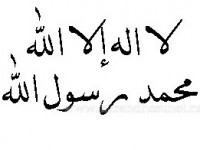 لا اله إلا الله
محمد رسول الله